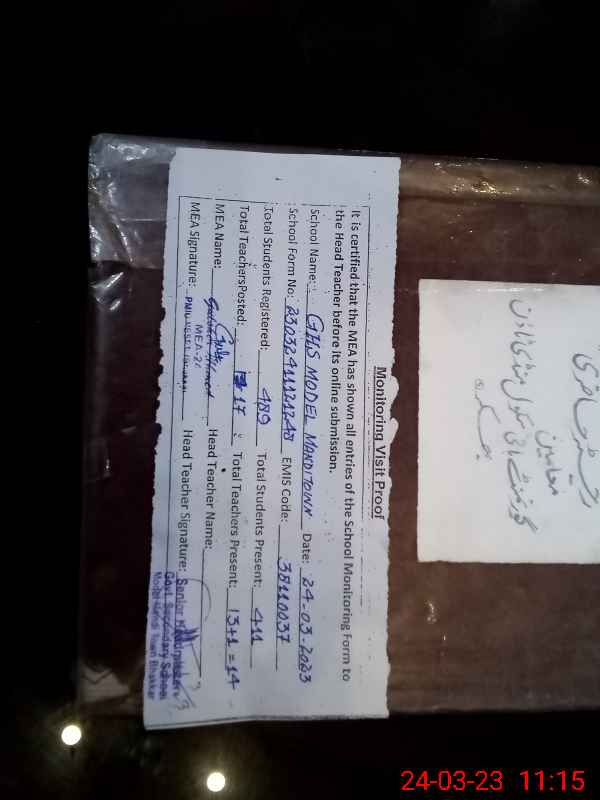 Monitoring Visit Proof
It is certified that the MEA has shown all entries of the School Monitoring Form to
the Head Teacher before its online submission.
School Name: GHS MODEL MANDITOWN Date: 24-03-2023
School Form No: EMIS Code: 38110037
Total Students Registered: 489 Total Students Present: 411
Total TeachersPosted: 17 Total Teachers Present: 13+1=14
MEA Name: Head Teacher Name:
MEA-21
MEA Signature: Head Teacher Signature:
Senior Headmaster
Govt. Secondary School
Model Mandi Town Bhakkar
رجسٹر حاضری
معلمین
گورنمنٹ ہائی سکول منڈی ٹاؤن
بھکر
24-03-23 11:15